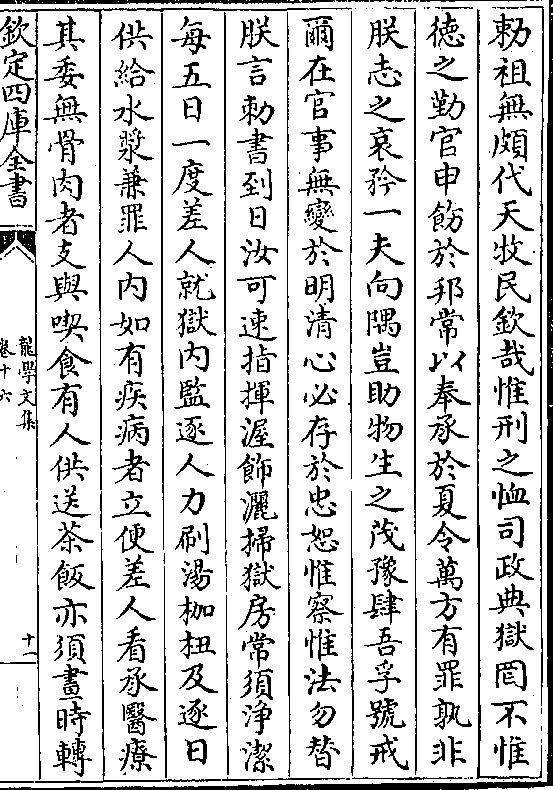 勅祖無頗代天牧民欽哉惟刑之恤司政典獄罔不惟
德之勤官申飭於邦常以奉承於夏令萬方有罪孰非
朕志之哀矜一夫向隅豈助物生之茂豫肆吾孚號戒
爾在官事無變於明清心必存於忠恕惟察惟法勿替
朕言勅書到日汝可速指揮渥飾灑掃獄房常須浄潔
每五日一度差人就獄内監逐人力刷湯枷杻及逐日
供給水漿兼罪人内如有疾病者立便差人看承醫療
其委無骨肉者支與喫食有人供送茶飯亦須畫時轉
欽定四庫全書
龍學文集
卷十六
十一